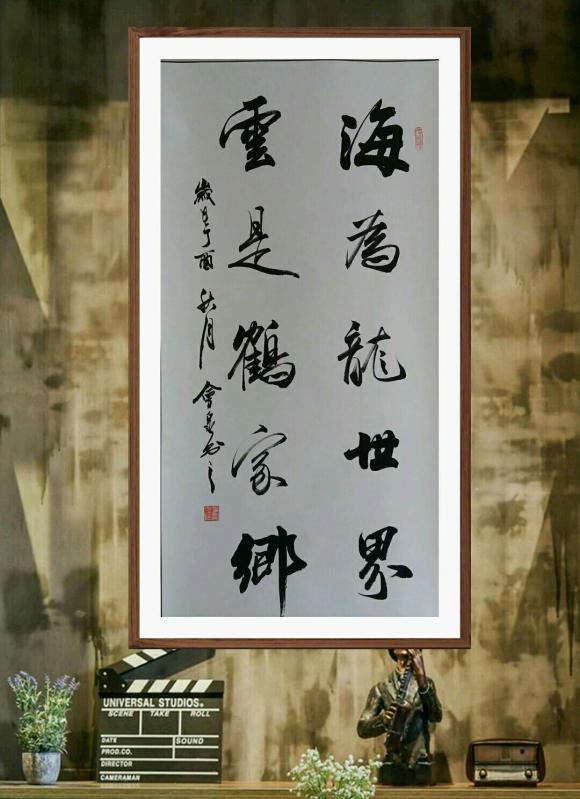 海為龍世界
雲是鶴家鄉
歲在丁酉秋月會泉書之
UNIVERSAL STUDIOS®
SCENE TAKE ROLL
DATE SOUND
PROD.CO.
DIRECTOR
CAMERAMAN